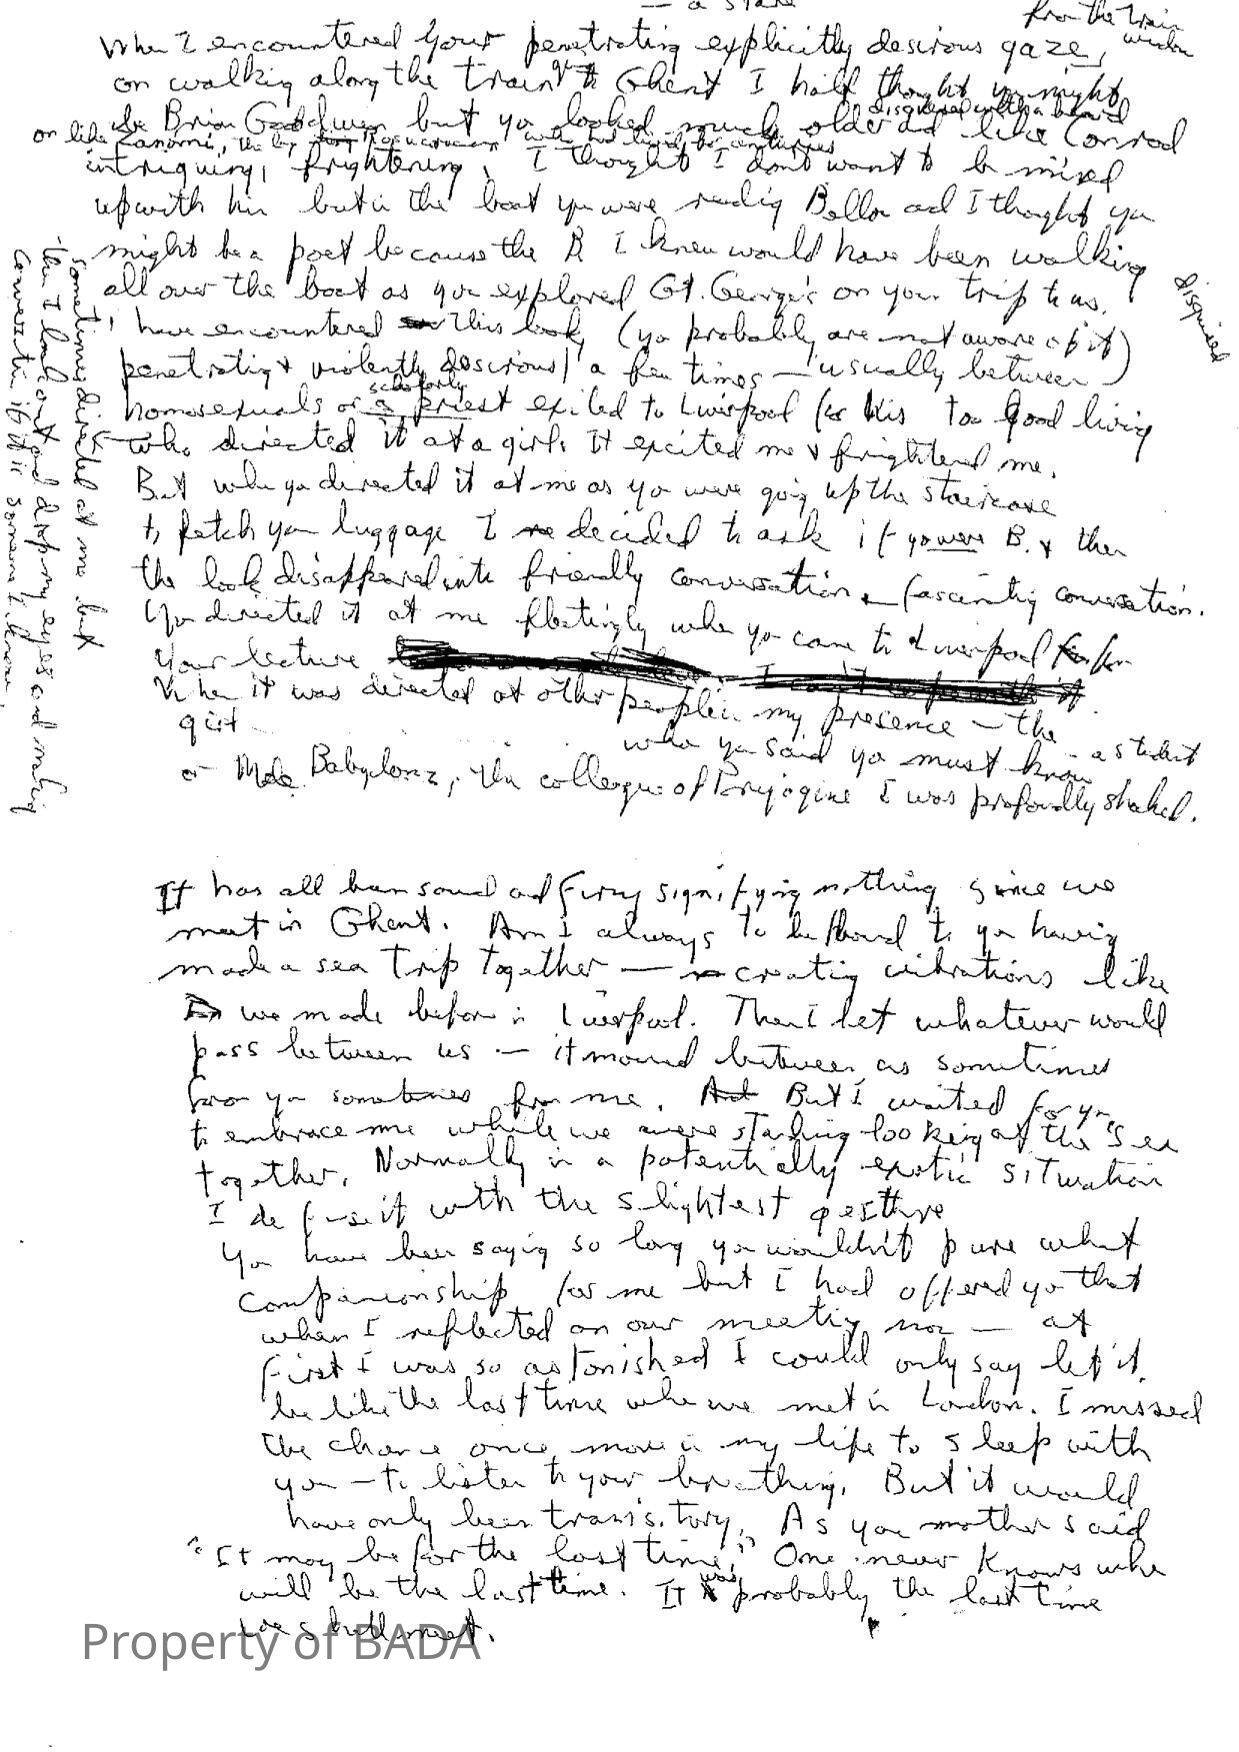 — a stare
from the train
window
When I encountered your penetrating explicitly desirous gaze,
on walking along the train to Ghent I half thought you might
disguised with a beard
be Brian Goodwin but you looked much older and like Conrad
or like Zanoni, the
intriguing, frightening, I thought I don't want to be mixed
up with him but in the boat you were reading and I thought you
might be a poet because the B I knew would have been walking
all over the boat as you explored Gt. George's on your trip to us.
disguised
I have encountered this look (you probably are not aware of it)
penetrating & violently desirous a few times — usually between
scholarly
homosexuals or a priest exiled to Liverpool for his too good living
who directed it at a girl. It excited me & frightened me.
But when you directed it at me as you were going up the staircase
to fetch your luggage I decided to ask if you were B. & then
the look disappeared into friendly conversation, fascinating conversation.
You directed it at me fleetingly when you came to Liverpool for
your lecture
I can't cope with it
When it was directed at other people in my presence — the
girl
who you said you must know — a student
or Mde Babyloyantz, the colleague of Prigogine I was profoundly shaked.
sometimes directed at me but
then I look out and drop my eyes and making
conversation if it is someone I know
It has all been sound and fury signifying nothing since we
met in Ghent. Am I always to be bound to you having
made a sea trip together — creating vibrations like
we made before in Liverpool. Then I let whatever would
pass between us — it moved between us sometimes
from you sometimes from me. And But I waited for you
to embrace me while we were standing looking at the sea
together. Normally in a potentially erotic situation
I defuse it with the slightest gesture
You have been saying so long you wouldn't what
companionship for me but I had offered you that
when I reflected on our meeting now — at
first I was so astonished I could only say let it
be like the last time when we met in London. I missed
the chance once more in my life to sleep with
you — to listen to your breathing. But it would
have only been transitory. As your mother said
"It may be for the last time." One never knows when
will be the last time. It was probably the last time
we shall meet.
Property of BADA